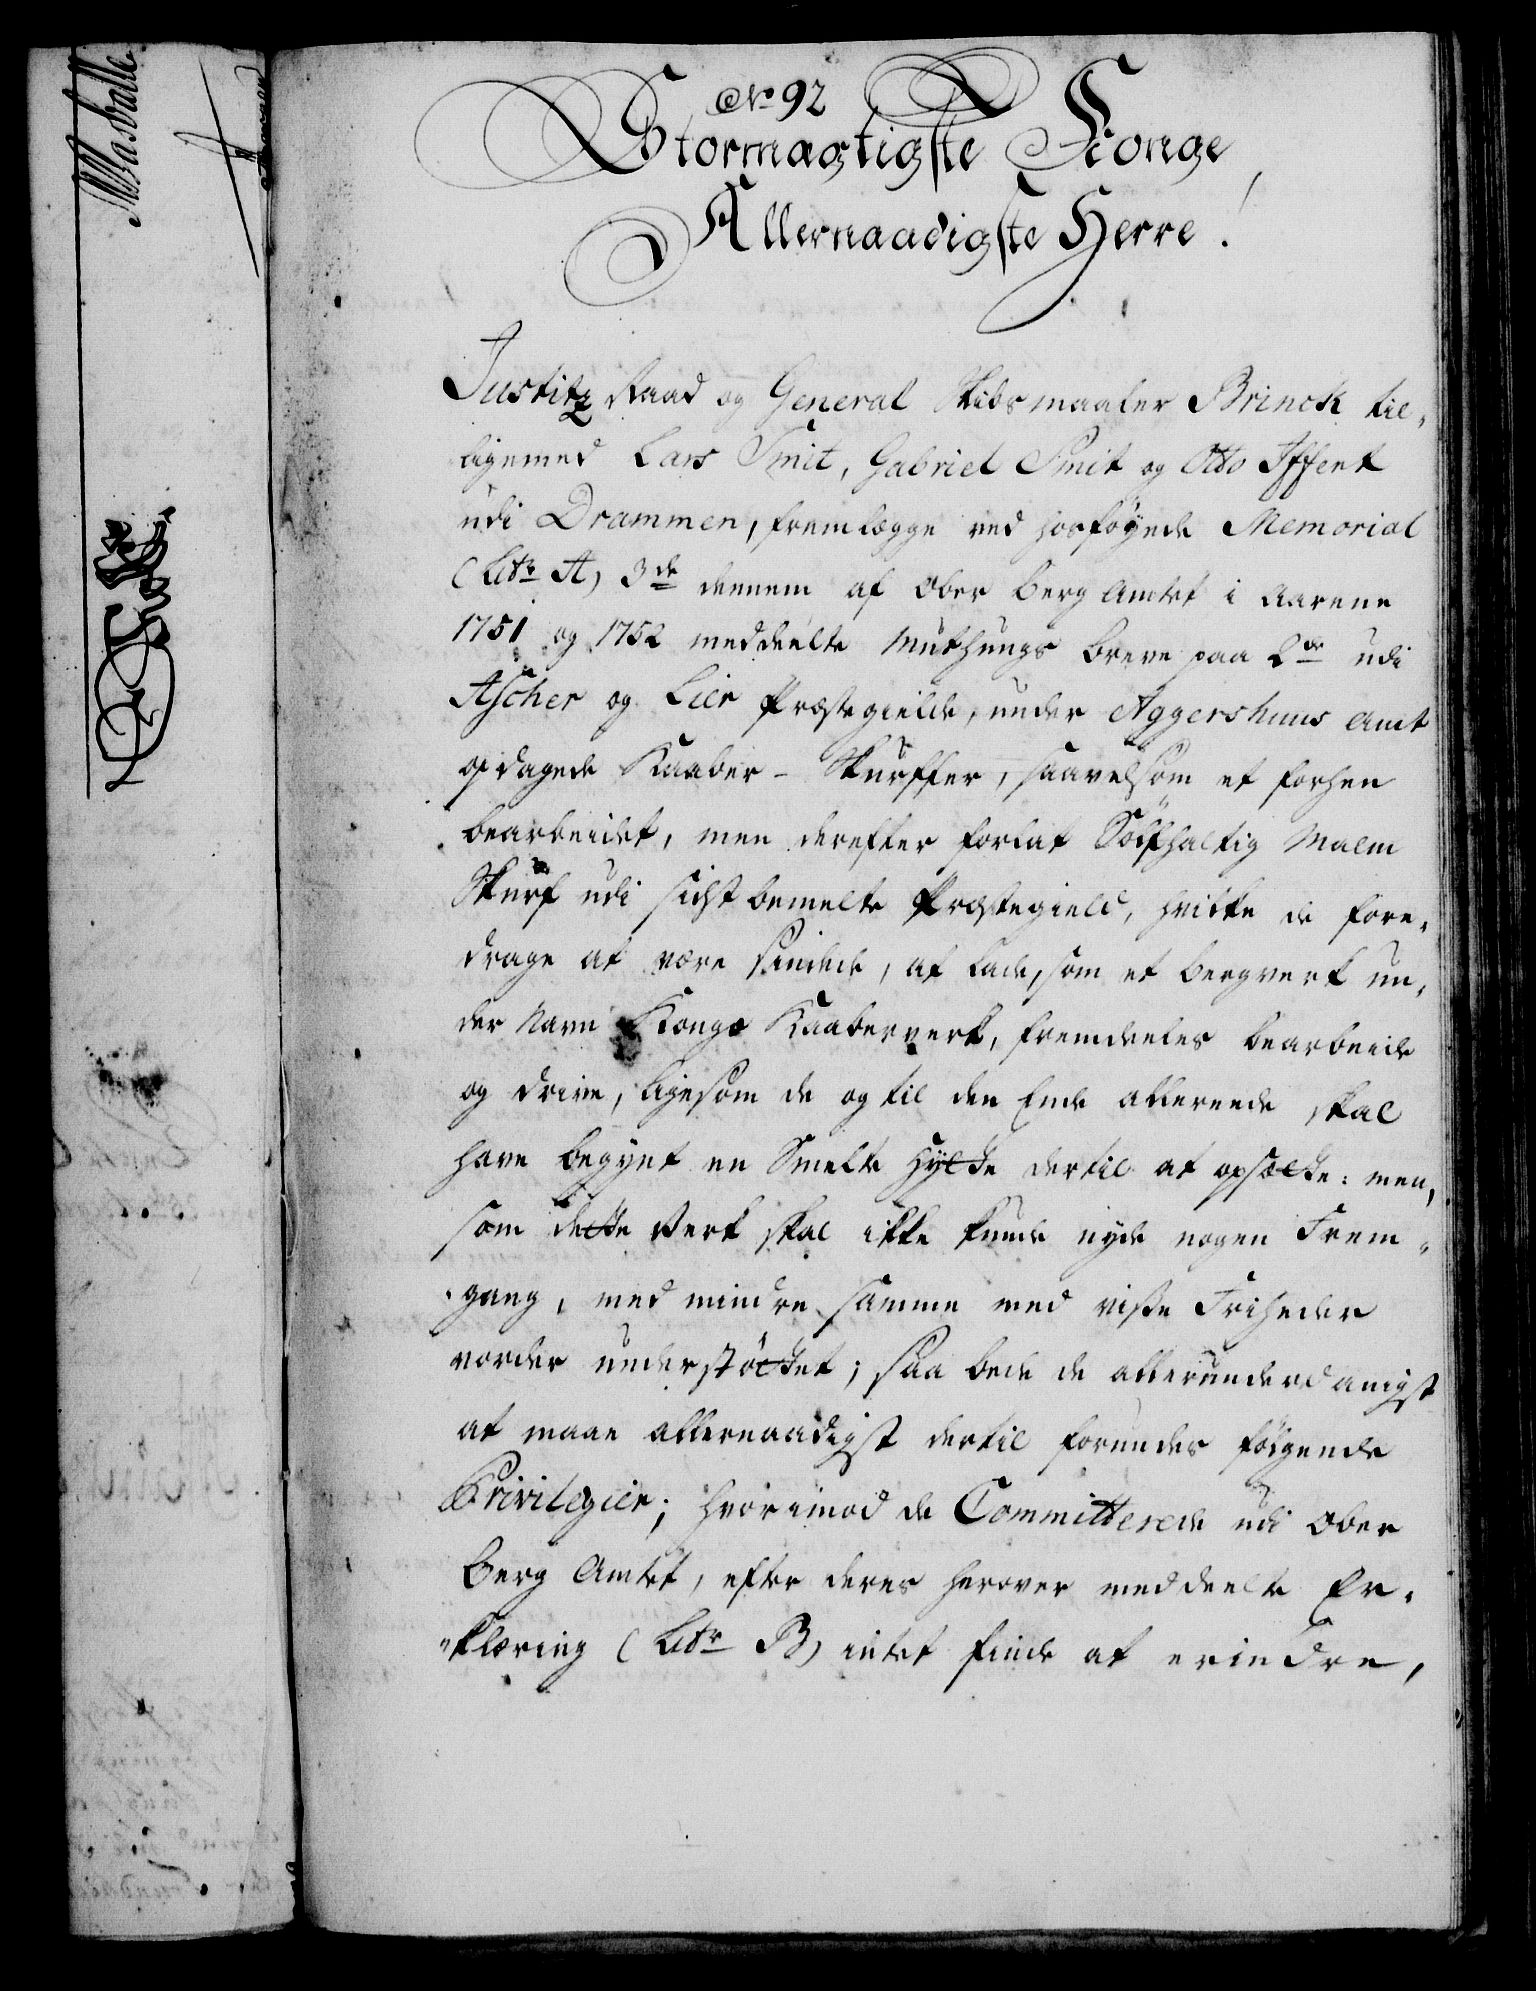 No. 92
Stormægtigste Konge
Allernaadigste Herre!
Justitz Raad og General Skibsmaaler Brinck til-
ligemed Lars Smit, Gabriel Smit og Otto Iffent
udi Drammen, fremlegge ved hosføyede Memorial
(Litr. A) 3de dennem af Ober Berg Amtet i Aarene
1751 og 1752 meddeelte Muthungs Breve paa 2de udi
Ascher og Lier Præstegields, under Aggershuus Amt
opdagede Kaaber-Skurffer, saavelsom et forhen
bearbeidet, men derefter forlat Sølfhaltig Malm
Skurf udi sidstbemelte Præstegield, hvilke de fore-
drage at være sindede, at lade, som et bergverk un-
der Navn Kongs Kaaberverk, fremdeeles bearbeide
og drive, ligesom de og til den Ende allereede skal
have begynt en Smelte Hytte dertil at opsætte: men,
som dette Verk skal ikke kunde nyde nogen Frem-
gang, med mindre samme med visse Friheder
vorder understøttet; saa bede de allerunderdanigst
at maae allernaadigst dertil forundes følgende
Privilegier; hvorimod de Committerede udi Ober
Berg Amtet, efter deres herover meddeelte Er-
klæring (Litr. B) intet finde at erindre,